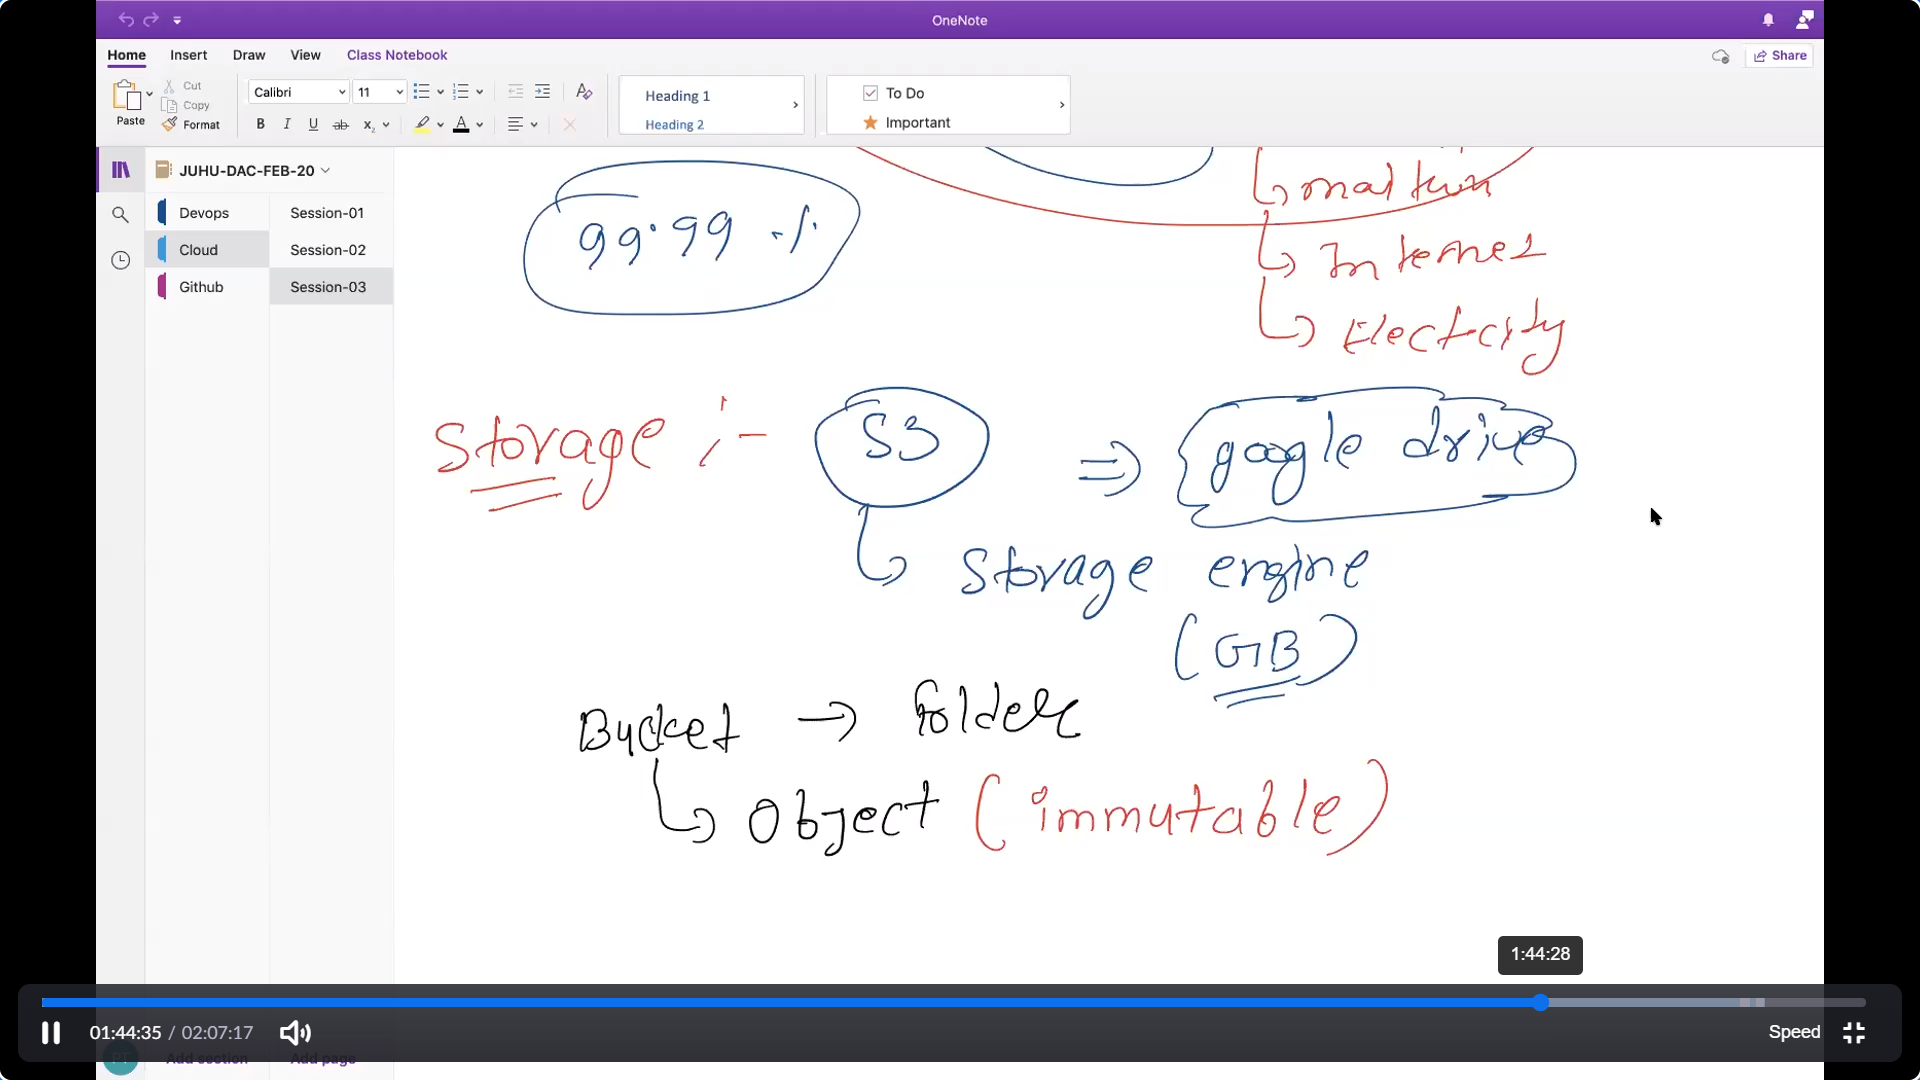 OneNote
Home Insert Draw View Class Notebook
Share
Paste
Cut
Copy
Format
Calibri 11
B I U ab x₂ A
Heading 1
Heading 2
To Do
Important
JUHU-DAC-FEB-20
Devops
Cloud
Github
Session-01
Session-02
Session-03
99.99 %
Internet
Electcity
Storage :- S3 ⇒ google drive
↳ Storage engine
(GB)
Bucket → folder
↳ Object (immutable)
1:44:28
01:44:35 / 02:07:17
Speed
Add section Add page